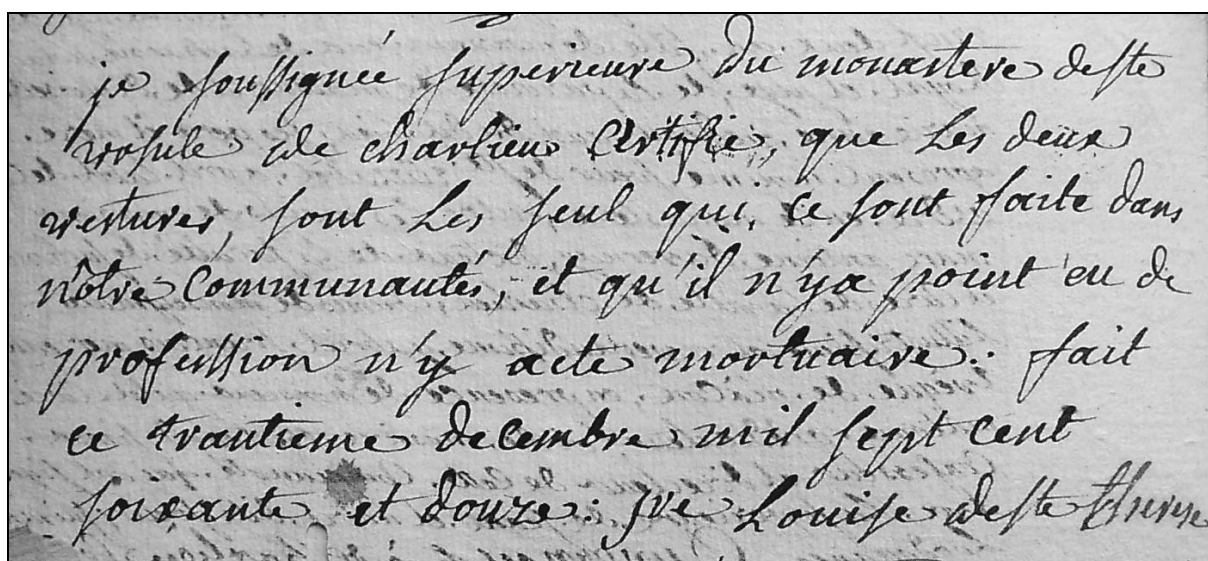 je soussignée superieure du monastere de ste
ursule de charlieu certifie, que les deux
vestures, sont les seul qui, ce sont faite dans
nôtre communautés, et qu'il n'ya point eu de
profession n'y acte mortuaire. fait
ce trantieme decembre mil sept cent
soixante et douze. sre Louise de ste therese